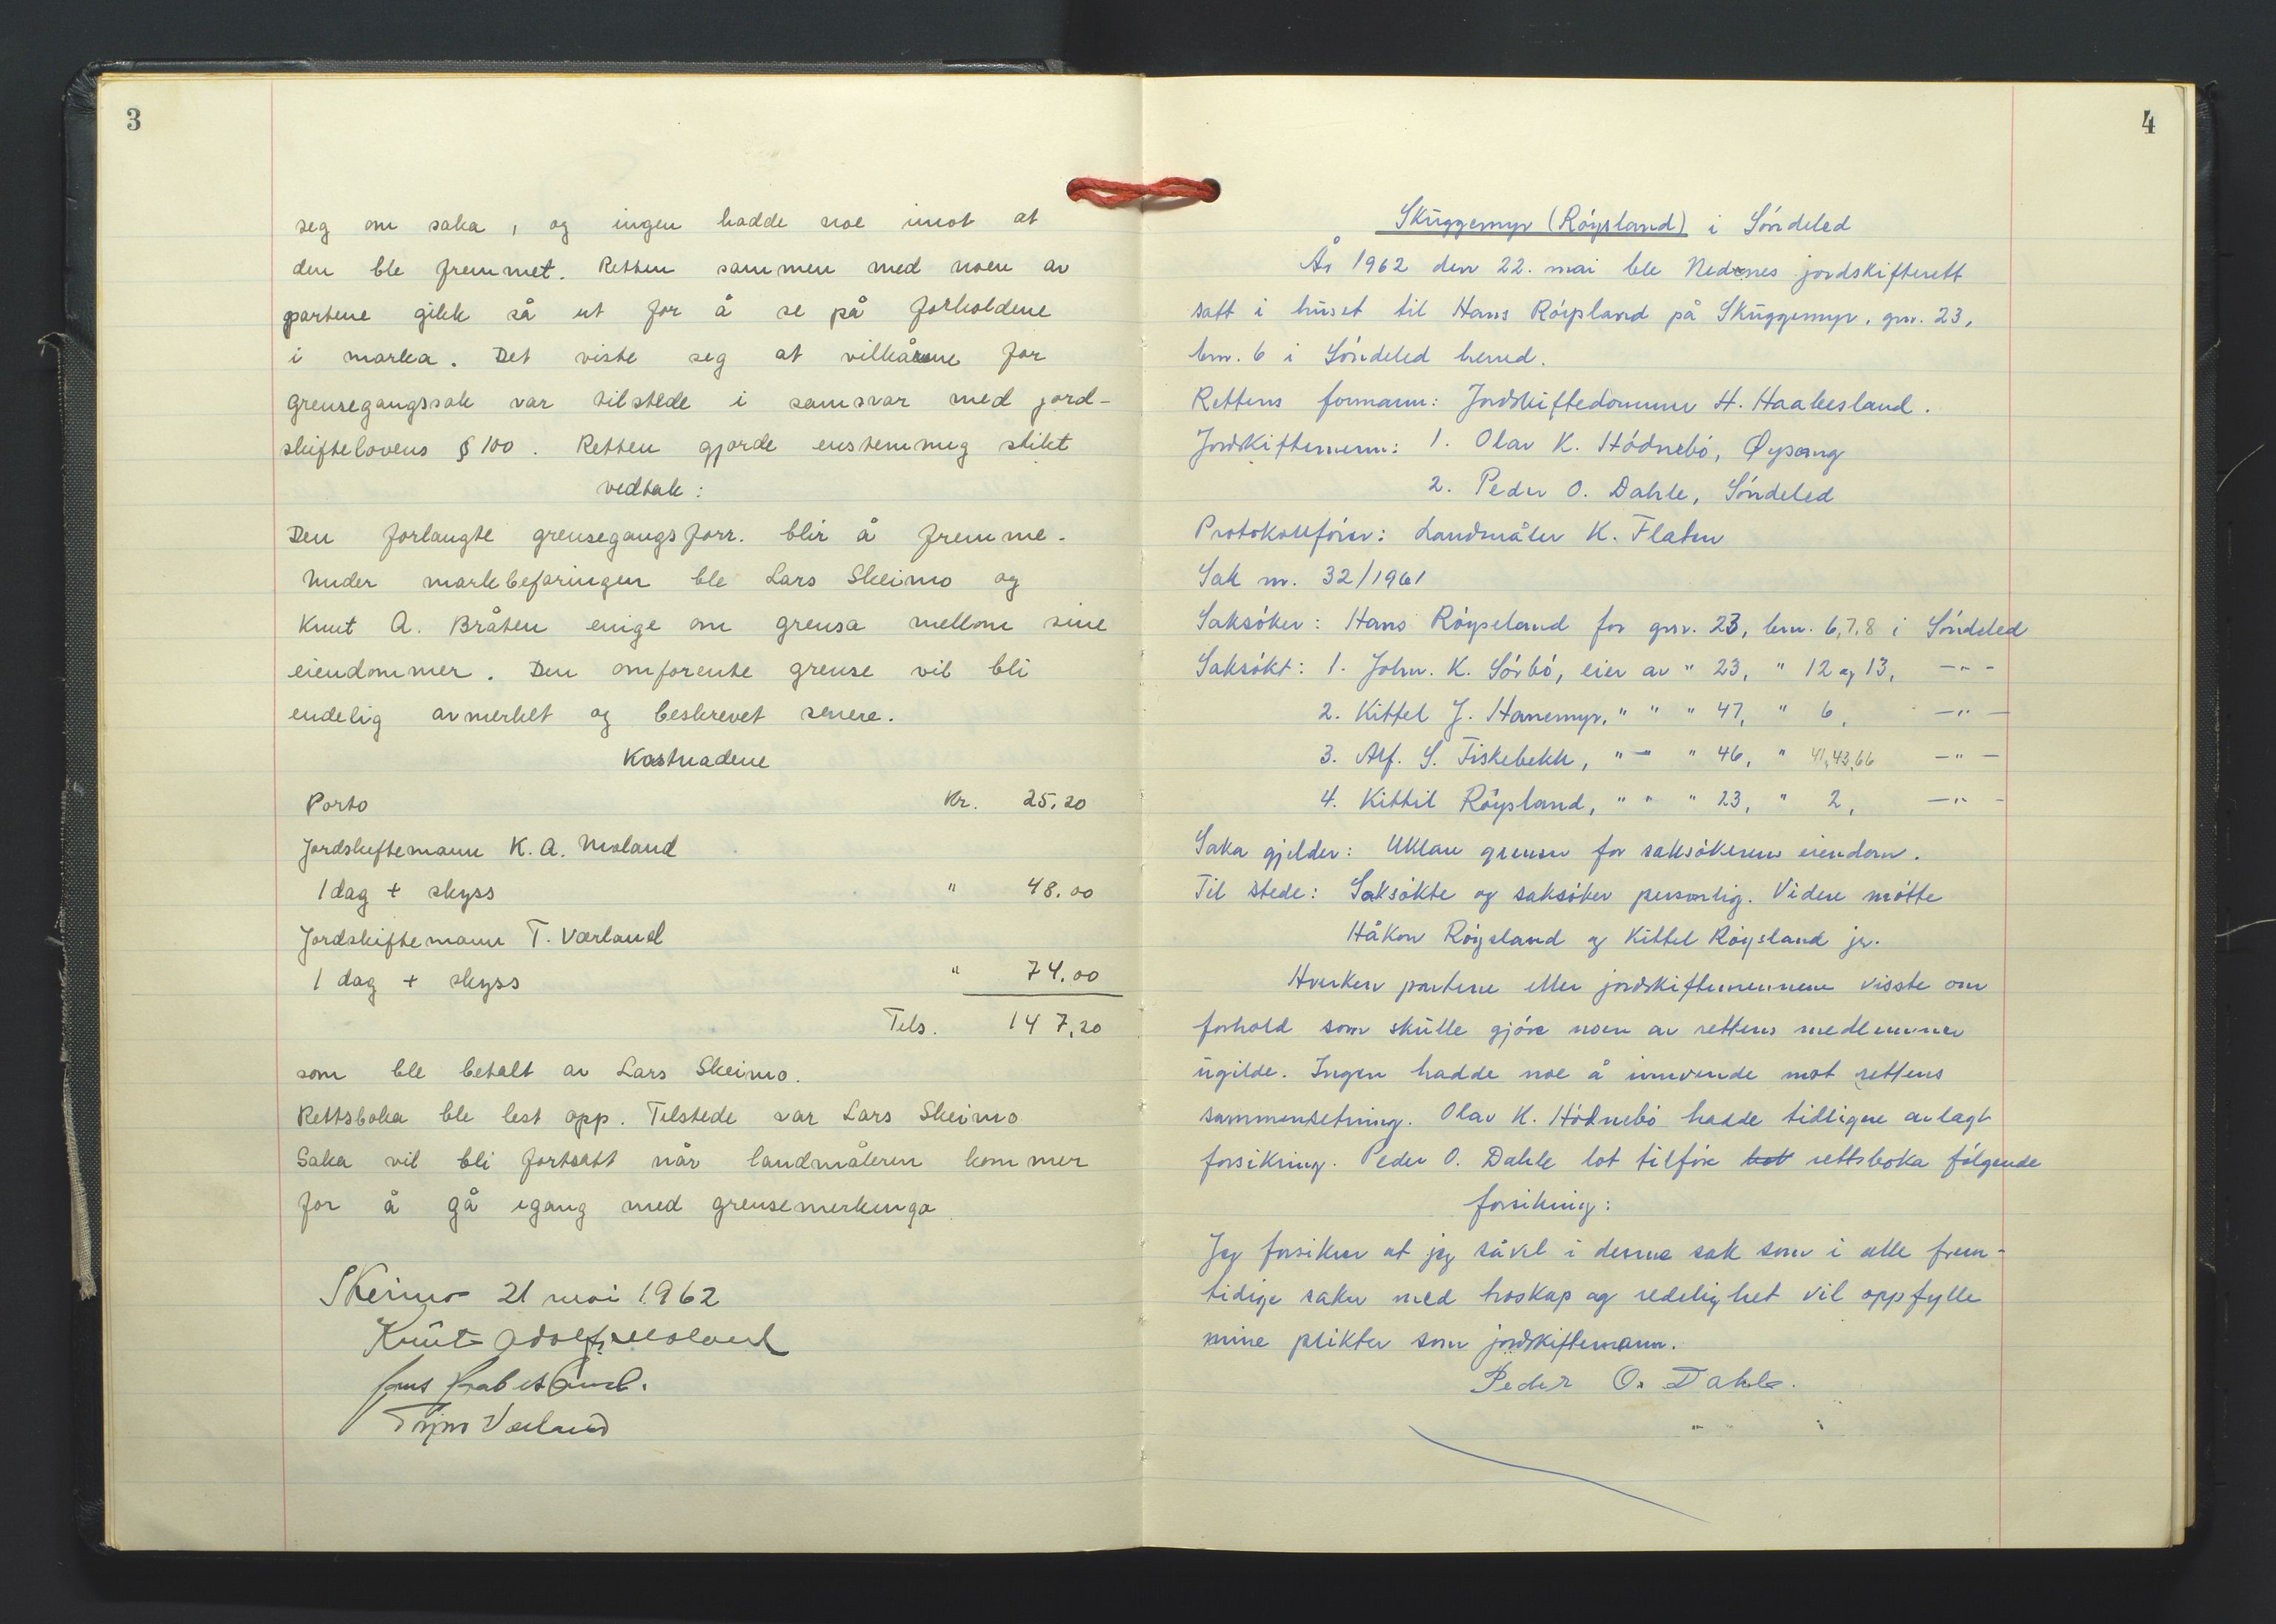 3
seg om saka, og ingen hadde noe imot at
den ble fremmet. Retten sammen med noen av
partene gikk så ut for å se på forholdene
i marka. Det viste seg at vilkårene for
grensegangssak var tilstede i samsvar med jord-
skiftelovens § 100. Retten gjorde enstemmig slikt
vedtak:
Den forlangte grensegangsforr. blir å fremme.
Under markbefaringen ble Lars Skeimo og
Knut A. Bråten enige om grensa mellom sine
eiendommer. Den omforente grense vil bli
endelig avmerket og beskrevet senere.
Kostnadene
Porto Kr. 25,20
Jordskiftemann K. A. Moland
1 dag + skyss " 48.00
Jordskiftemann T. Værland
1 dag + skyss " 74,00
Tils. 147,20
som ble betalt av Lars Skeimo.
Rettsboka ble lest opp. Tilstede var Lars Skeimo
Saka vil bli fortsatt når landmåleren kommer
for å gå igang med grensemerkinga
Skeimo 21 mai 1962
Knut Adolf Moland
Værland
4
Skuggemyr (Röysland) i Söndeled
År 1962 den 22. mai ble Nedenes jordskifterett
satt i huset til Hans Röysland på Skuggemyr, gnr. 23,
bnr. 6 i Söndeled herred.
Rettens formann: Jordskiftedommer H. Haabesland.
Jordskiftemenn: 1. Olav K. Hödnebö, Øysang
2. Peder O. Dahle, Söndeled
Protokollförer: Landmåler K. Flaten
Sak nr. 32/1961
Saksöker: Hans Röyseland for gnr. 23, bnr. 6,7,8 i Söndeled
Saksökt: 1. John. K. Sörbö, eier av " 23, " 12 og 13, -"-
2. Kittel J. Hanemyr, " " " 47, " 6, -"-
3. Alf. S. Fiskebekk, "- " 46, " 41,43,66 -"-
4. Kittil Röysland, " " " 23, " 2, -"-
Saka gjelder: Uklare grenser for saksökerens eiendom.
Til stede: Saksökte og saksöker personlig. Videre mötte
Håkon Röysland og Kittel Röysland jr.
Hverken partene eller jordskiftemennene visste om
forhold som skulle gjöre noen av rettens medlemmer
ugilde. Ingen hadde noe å innvende mot rettens
sammensetning. Olav K. Hödnebö hadde tidligere avlagt
forsikring. Peder O. Dahle lot tilföre bot rettsboka fölgende
forsikring:
Jeg forsikrer at jeg såvel i denne sak som i alle frem-
tidige saker med troskap og redelighet vil oppfylle
mine plikter som jordskiftemann.
Peder O. Dahle.